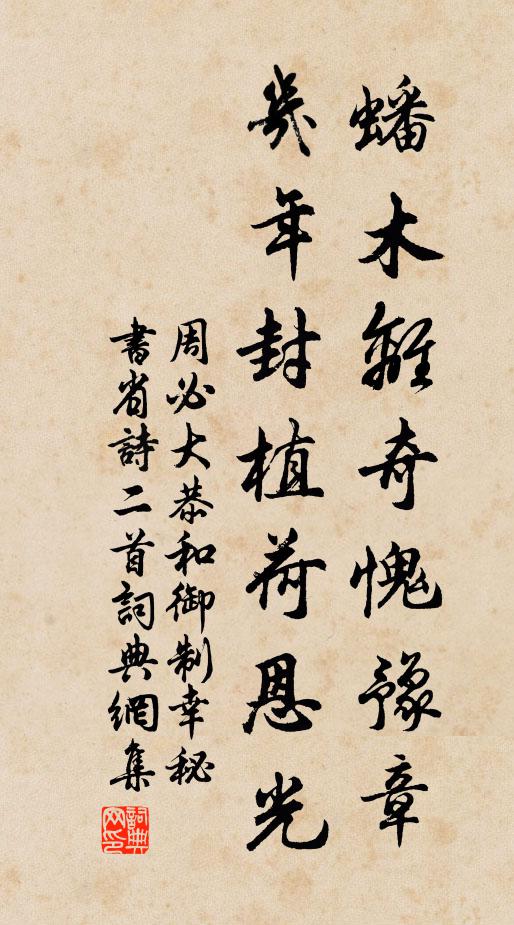 蟠木離奇愧豫章
幾年封植荷恩光
周必大恭和御制幸秘
書省詩二首詞典網集
詞典网印